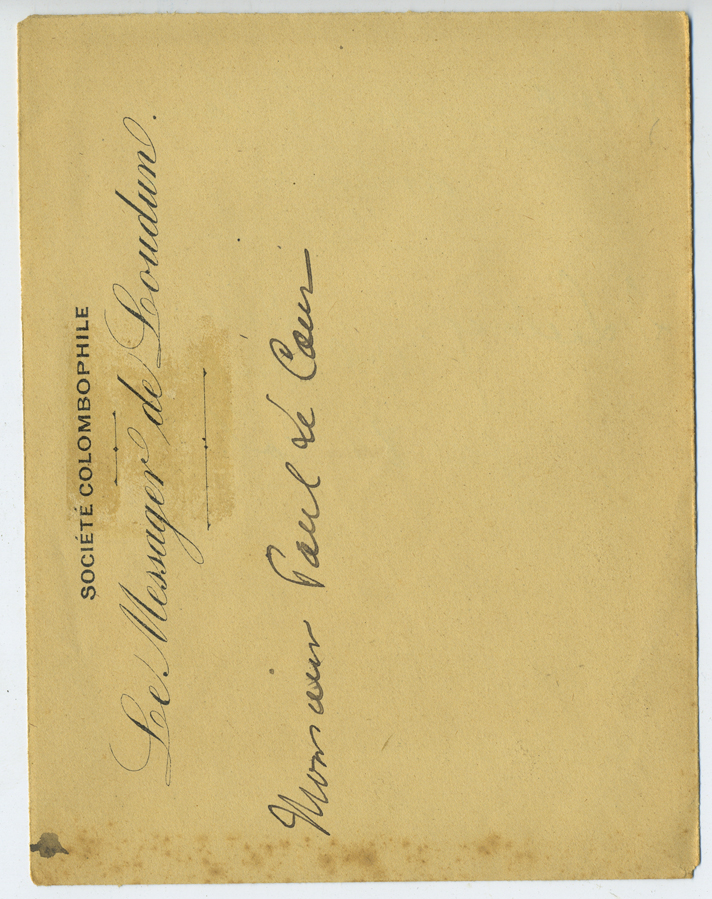 SOCIÉTÉ COLOMBOPHILE
Le Messager de Loudun.
Monsieur Paul Le Cœur